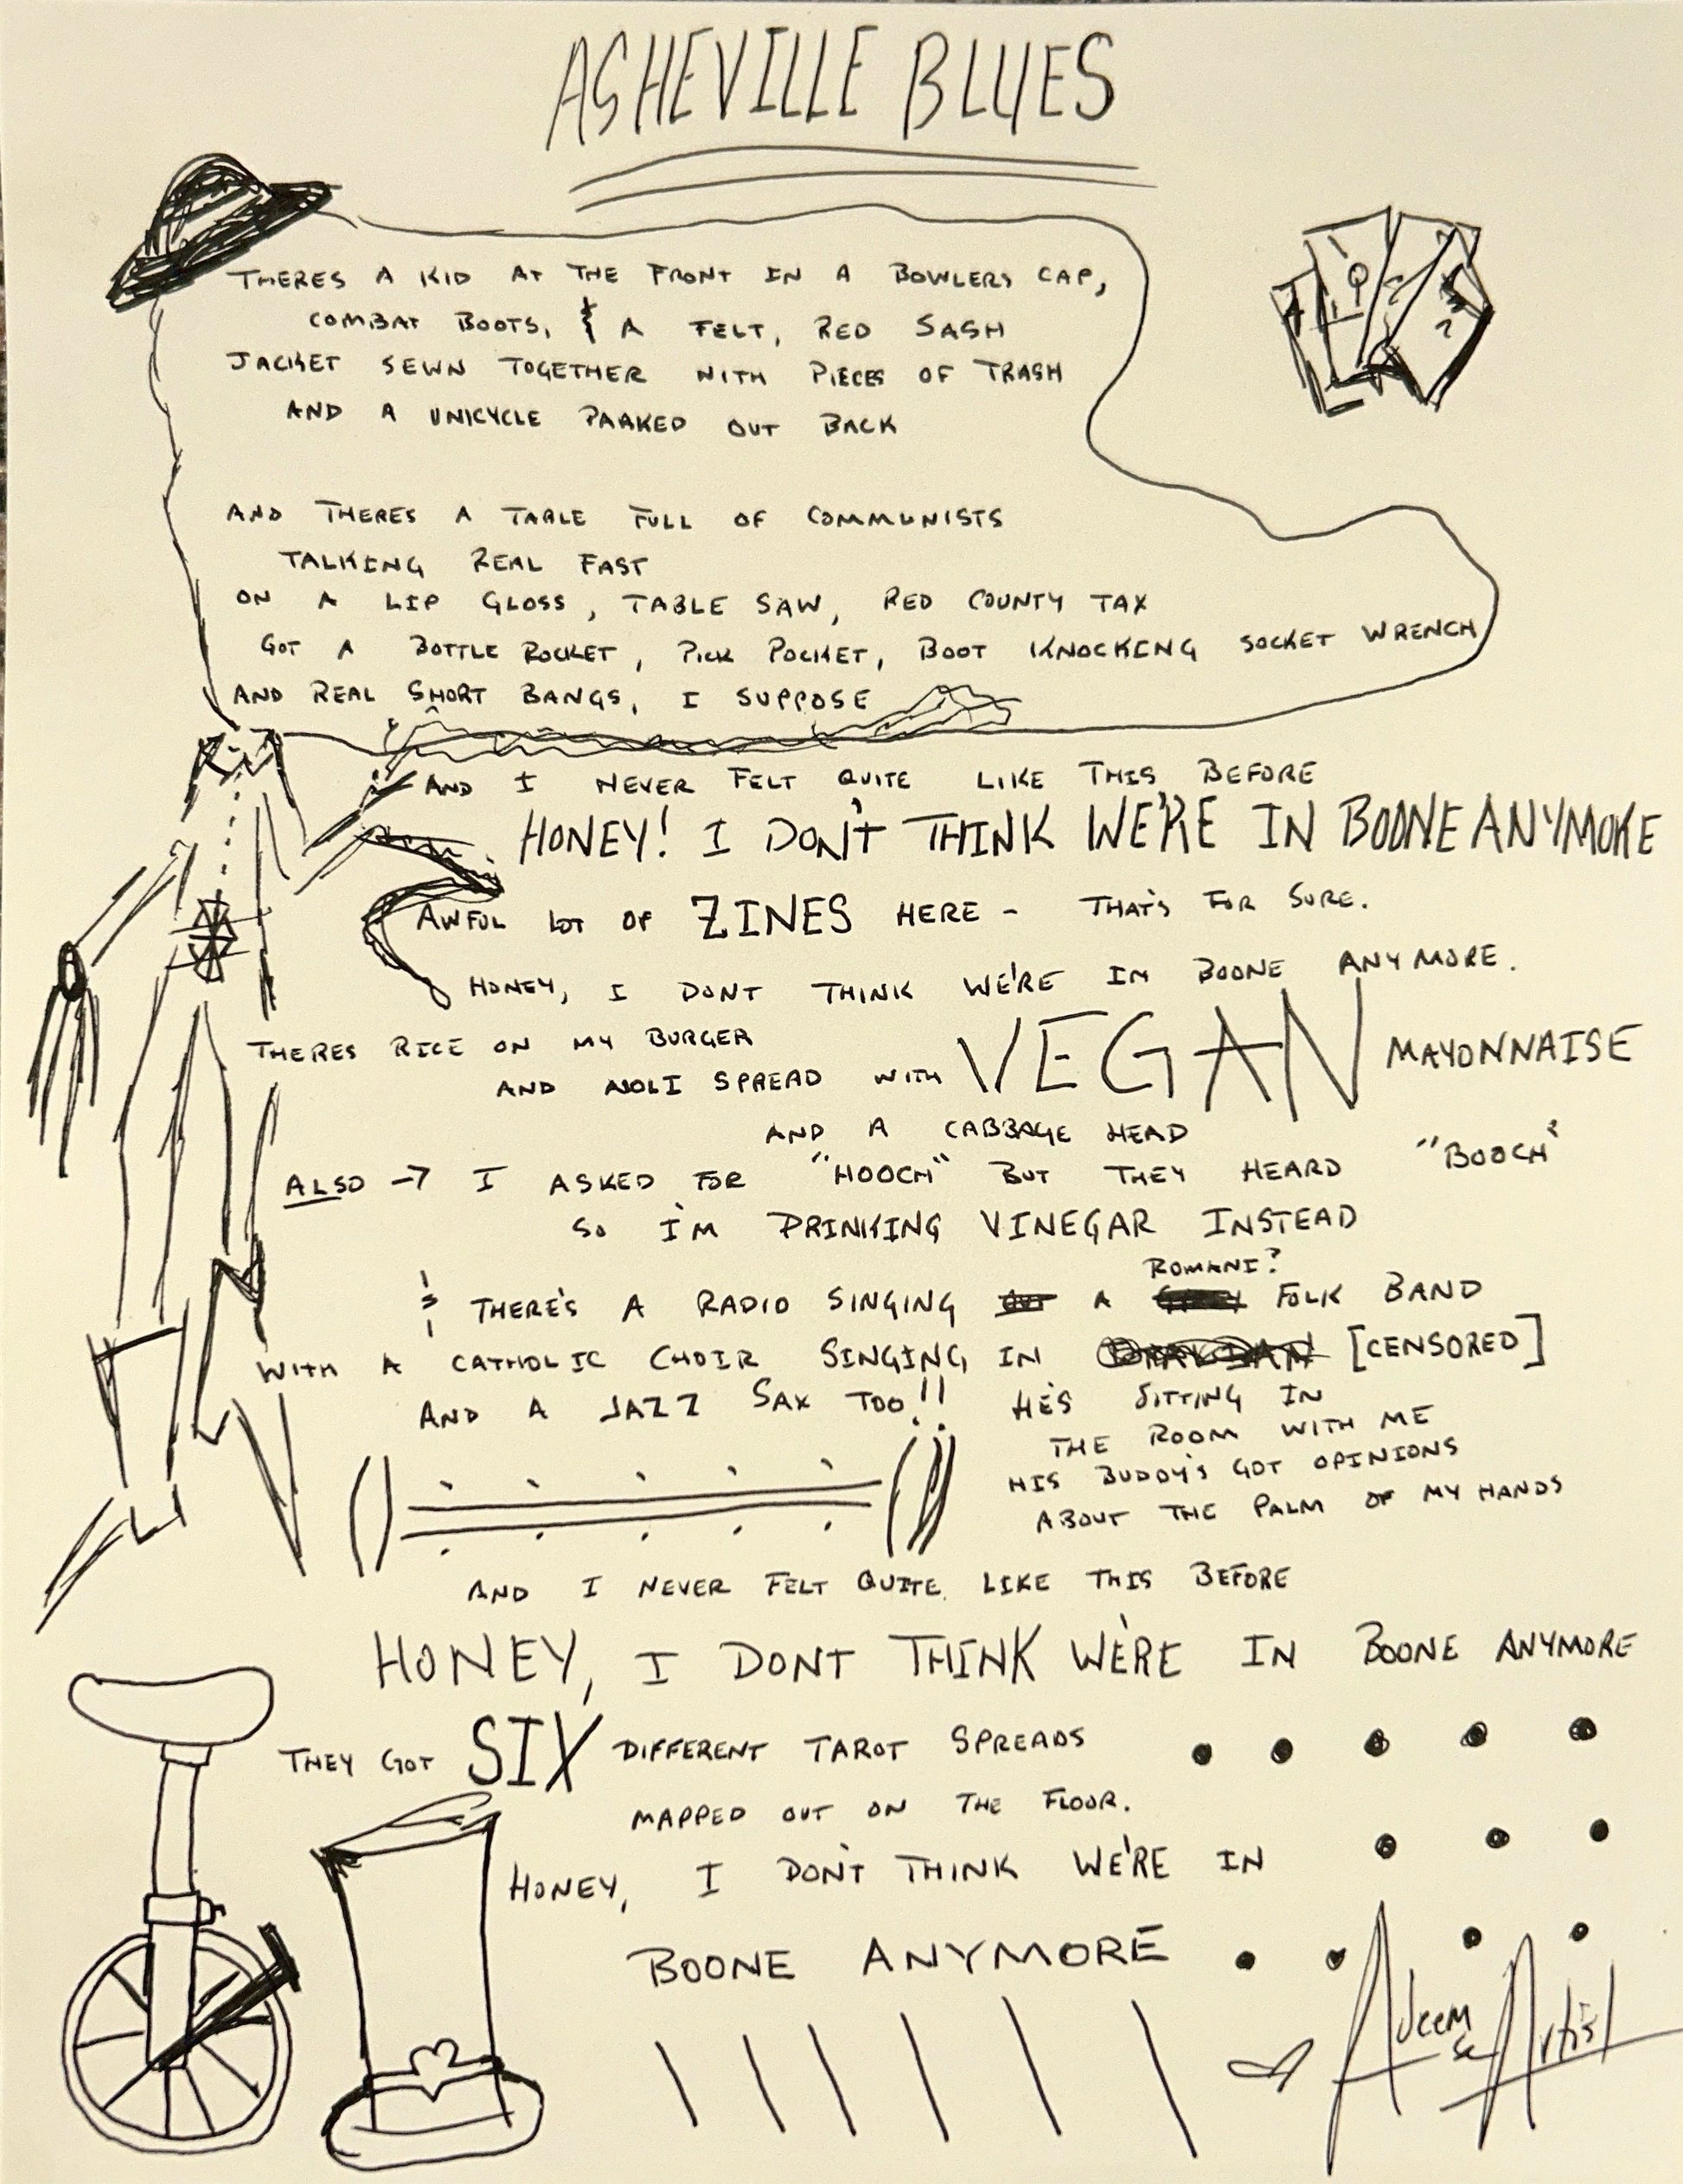 ASHEVILLE BLUES
THERES A KID AT THE FRONT IN A BOWLERS CAP,
COMBAT BOOTS, & A FELT, RED SASH
JACKET SEWN TOGETHER WITH PIECES OF TRASH
AND A UNICYCLE PARKED OUT BACK
AND THERES A TABLE FULL OF COMMUNISTS
TALKING REAL FAST
ON A LIP GLOSS, TABLE SAW, RED COUNTY TAX
GOT A BOTTLE ROCKET, PICK POCKET, BOOT KNOCKING SOCKET WRENCH
AND REAL SHORT BANGS, I SUPPOSE
AND I NEVER FELT QUITE LIKE THIS BEFORE
HONEY! I DON'T THINK WE'RE IN BOONE ANYMORE
AWFUL LOT OF ZINES HERE - THAT'S FOR SURE.
HONEY, I DONT THINK WE'RE IN BOONE ANYMORE.
THERES RICE ON MY BURGER
AND AIOLI SPREAD WITH VEGAN MAYONNAISE
AND A CABBAGE HEAD
ALSO → I ASKED FOR "HOOCH" BUT THEY HEARD "BOOCH"
SO I'M DRINKING VINEGAR INSTEAD
ROMANI?
& THERE'S A RADIO SINGING A FOLK BAND
WITH A CATHOLIC CHOIR SINGING IN [CENSORED]
AND A JAZZ SAX TOO!!
HE'S SITTING IN
THE ROOM WITH ME
HIS BUDDY'S GOT OPINIONS
ABOUT THE PALM OF MY HANDS
AND I NEVER FELT QUITE LIKE THIS BEFORE
HONEY, I DONT THINK WE'RE IN BOONE ANYMORE
THEY GOT SIX DIFFERENT TAROT SPREADS
MAPPED OUT ON THE FLOOR.
HONEY, I DON'T THINK WE'RE IN
BOONE ANYMORE
Adeem the Artist